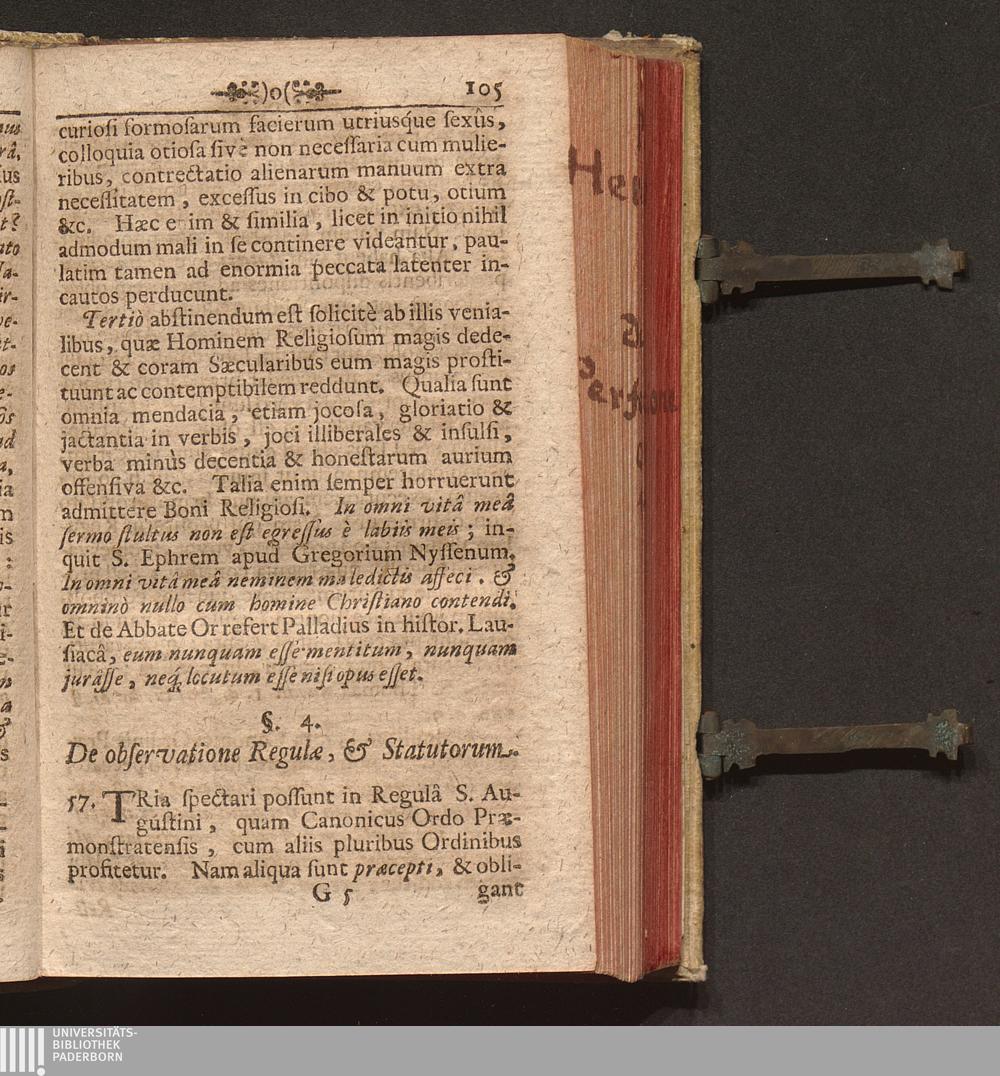 )o( 105
curioſi formoſarum facierum utriusque ſexûs,
colloquia otioſa ſivè non neceſſaria cum mulie-
ribus, contrectatio alienarum manuum extra
neceſſitatem, exceſſus in cibo & potu, otium
&c. Hæc e im & ſimilia, licet in initio nihil
admodum mali in ſe continere videantur, pau-
latim tamen ad enormia peccata latenter in-
cautos perducunt.
Tertiò abſtinendum eſt ſolicitè ab illis venia-
libus, quæ Hominem Religioſum magis dede-
cent & coram Sæcularibus eum magis proſti-
tuunt ac contemptibilem reddunt. Qualia ſunt
omnia mendacia, etiam jocoſa, gloriatio &
jactantia in verbis, joci illiberales & inſulſi,
verba minùs decentia & honeſtarum aurium
offenſiva &c. Talia enim ſemper horruerunt
admittere Boni Religioſi. In omni vitâ meâ
ſermo ſtultus non eſt egreſſus è labiis meis; in-
quit S. Ephrem apud Gregorium Nyſſenum.
In omni vitâ meâ neminem maledictis affeci. &
omninò nullo cum homine Chriſtiano contendi.
Et de Abbate Or refert Palladius in hiſtor. Lau-
ſiacâ, eum nunquam eſſe mentitum, nunquam
jurâſſe, neq́; locutum eſſe niſi opus eſſet.
§. 4.
De obſervatione Regulæ, & Statutorum.
57. TRia ſpectari poſſunt in Regulâ S. Au-
guſtini, quam Canonicus Ordo Præ-
monſtratenſis, cum aliis pluribus Ordinibus
profitetur. Nam aliqua ſunt præcepti, & obli-
G 5 gant
UNIVERSITÄTS-
BIBLIOTHEK
PADERBORN